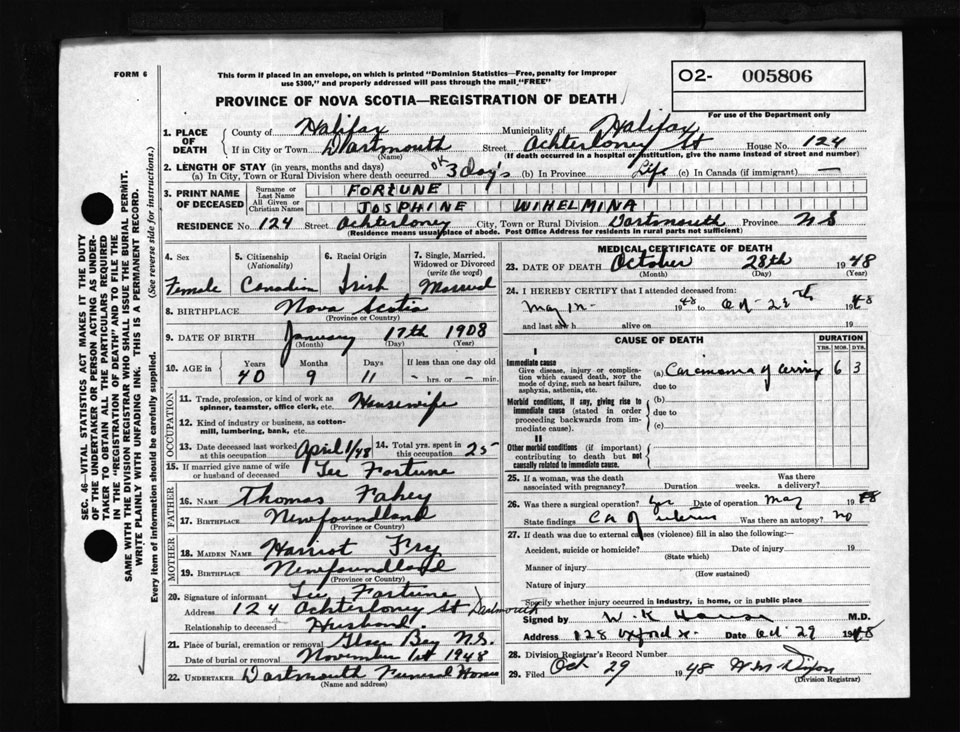 FORM 6
This form if placed in an envelope, on which is printed "Dominion Statistics—Free, penalty for improper
use $300," and properly addressed will pass through the mail "FREE"
O2- 005806
For use of the Department only
PROVINCE OF NOVA SCOTIA—REGISTRATION OF DEATH
1. PLACE OF DEATH County of Halifax Municipality of Halifax
If in City or Town Dartmouth Street Ochterloney St House No. 124
(Name) (If death occurred in a hospital or institution, give the name instead of street and number)
2. LENGTH OF STAY (in years, months and days)
(a) In City, Town or Rural Division where death occurred 3 Day's (b) In Province Life (c) In Canada (if immigrant) —
3. PRINT NAME OF DECEASED Surname or Last Name FORTUNE
All Given or Christian Names JOSPHINE WIHELMINA
RESIDENCE No. 124 Street Ochterloney City, Town or Rural Division Dartmouth Province N S
(Residence means usual place of abode. Post Office Address for residents in rural parts not sufficient)
4. Sex Female
5. Citizenship (Nationality) Canadian
6. Racial Origin Irish
7. Single, Married, Widowed or Divorced (write the word) Married
8. BIRTHPLACE Nova Scotia
(Province or Country)
9. DATE OF BIRTH January 17th 1908
(Month) (Day) (Year)
10. AGE in Years Months Days If less than one day old
40 9 11 — hrs. or — min.
OCCUPATION
11. Trade, profession, or kind of work as
spinner, teamster, office clerk, etc. Housewife
12. Kind of industry or business, as cotton-
mill, lumbering, bank, etc.
13. Date deceased last worked at this occupation April 1/48
14. Total yrs. spent in this occupation 25
15. If married give name of wife
or husband of deceased Fortune
FATHER
16. NAME Thomas Fahey
17. BIRTHPLACE Newfoundland
(Province or Country)
MOTHER
18. MAIDEN NAME Harriot Fry
19. BIRTHPLACE Newfoundland
(Province or Country)
20. Signature of informant Fortune
Address 124 Ochterloney St Dartmouth
Relationship to deceased Husband.
21. Place of burial, cremation or removal Glace Bay N.S.
Date of burial or removal November 1st 1948
22. UNDERTAKER Dartmouth Funeral Home
(Name and address)
MEDICAL CERTIFICATE OF DEATH
23. DATE OF DEATH October 28th 1948
(Month) (Day) (Year)
24. I HEREBY CERTIFY that I attended deceased from:
May 1948 to Oct 28th 1948
and last saw h alive on 19
CAUSE OF DEATH DURATION
YRS. MOS. DYS.
I
Immediate cause
Give disease, injury or complica-
tion which caused death, not the
mode of dying, such as heart failure,
asphyxia, asthenia, etc.
(a) Carcinoma of cervix 6 3
due to
Morbid conditions, if any, giving rise to
immediate cause (stated in order
proceeding backwards from im-
mediate cause).
(b)
due to
(c)
II
Other morbid conditions (if important)
contributing to death but not
causally related to immediate cause.
25. If a woman, was the death
associated with pregnancy? Duration weeks. Was there a delivery?
26. Was there a surgical operation? yes Date of operation May 1948
State findings Ca of uterus Was there an autopsy? no
27. If death was due to external causes (violence) fill in also the following:—
Accident, suicide or homicide? Date of injury 19
(State which)
Manner of injury
(How sustained)
Nature of injury
Specify whether injury occurred in industry, in home, or in public place
Signed by W. K. M.D.
Address 128 Oxford St. Date Oct. 29 1948
28. Division Registrar's Record Number
29. Filed Oct 29 1948 Dixon
(Division Registrar)
SEC. 46—VITAL STATISTICS ACT MAKES IT THE DUTY
OF THE UNDERTAKER OR PERSON ACTING AS UNDER-
TAKER TO OBTAIN ALL THE PARTICULARS REQUIRED
IN THE "REGISTRATION OF DEATH" AND TO FILE THE
SAME WITH THE DIVISION REGISTRAR WHO SHALL ISSUE THE BURIAL PERMIT.
WRITE PLAINLY WITH UNFADING INK. THIS IS A PERMANENT RECORD.
Every item of information should be carefully supplied. (See reverse side for instructions.)